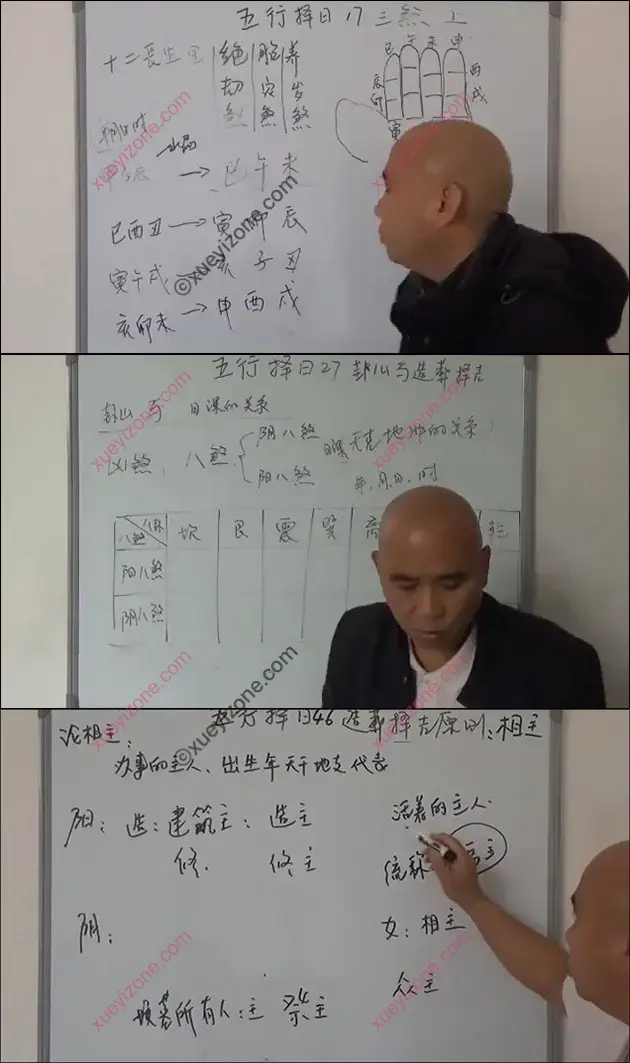 五行择日17三煞上
十二长生宫 绝 胎 养
劫 灾 岁
煞 煞 煞
巳 午 未 申
辰 酉
卯 戌
寅
→ 巳 午 未
巳酉丑 → 寅 卯 辰
寅午戌 亥 子 丑
亥卯未 → 申 酉 戌
©xueyizone.com
xueyizone.com
五行择日27封山与造葬择吉
封山与日课的关系
凶煞,八煞
阴八煞
阳八煞
年,月,日,时
八煞 坎 艮 震 巽 离
阳八煞
阴八煞
xueyizone.com
五行择日46造葬择吉原则:相主
论相主:
办事的主人、出生年天干地支代表
阳:造:建筑主:造主
修. 修主
活着的主人.
统称
阴:
女:相主
众主
坟墓所有人:主 祭主
©xueyizone.com
xueyizone.com